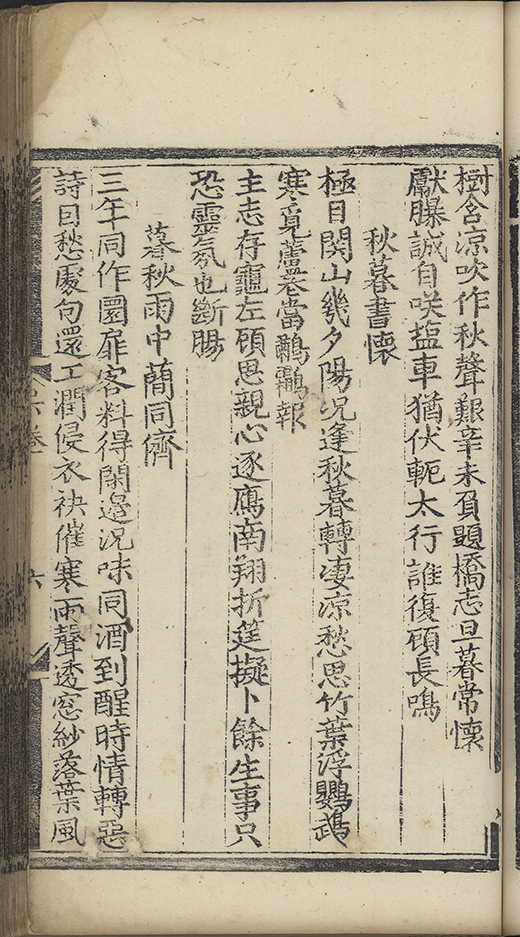 樹含涼吹作秋聲艱辛未負題橋志旦暮常懷
獻曝誠自咲盬車猶伏軛太行誰復頋長鳴
秋暮書懷
極目関山幾夕陽况逢秋暮轉凄涼愁思竹葉浮鸚鵡
寒覓蘆當鷫鸘報
主志存龜左頋思親心逐鴈南翔折筳擬卜餘生事只
恐靈氛也断膓
暮秋雨中蕳同儕
三年同作圜扉客料得閑邉况味同酒到醒時情轉惡
詩囙愁處句還工潤侵衣袂催寒雨聲透窓紗落葉風
六